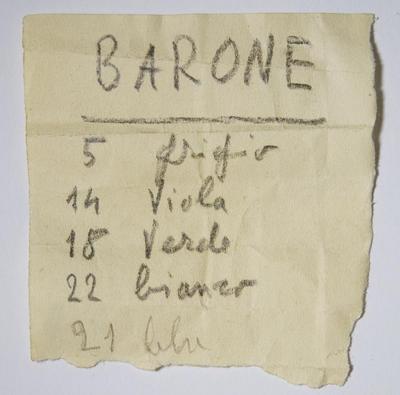 BARONE
5 grigio
14 Viola
18 Verde
22 bianco
21 blu